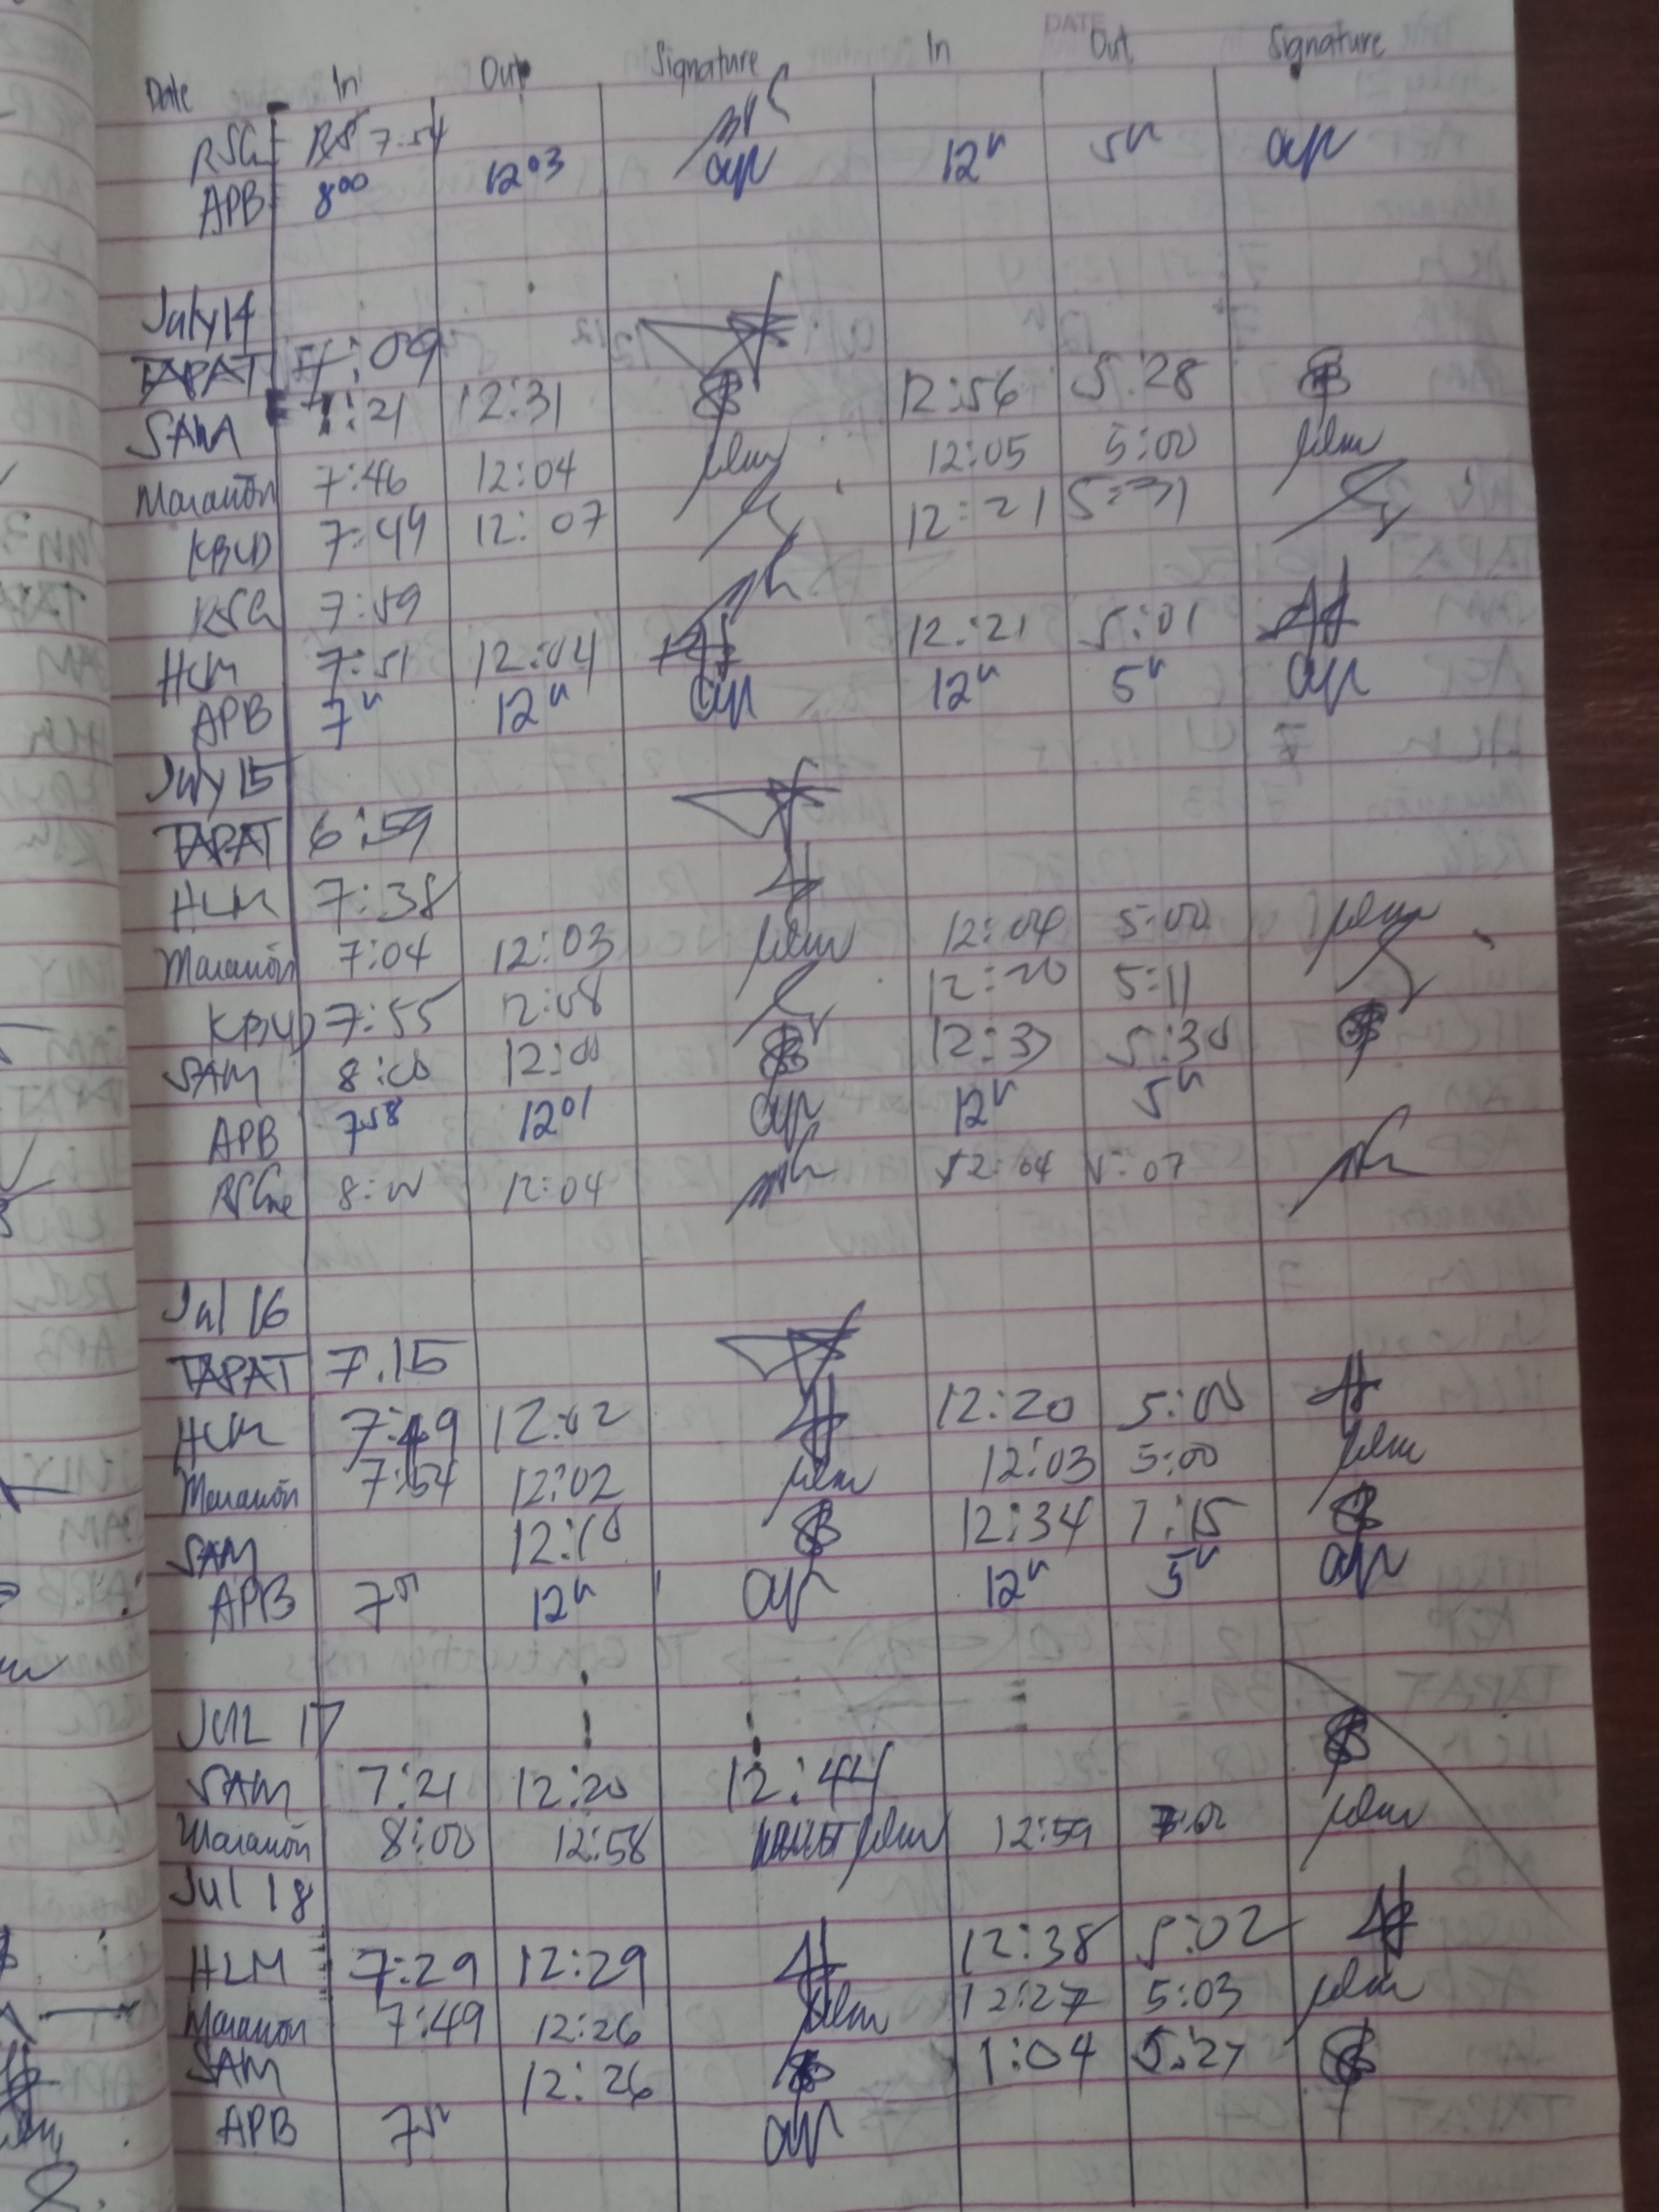 DATE
Date In Out Signature In Out Signature
RSG 7:54
APB 8⁰⁰ 12⁰³ 12ⁿ 5ⁿ
July 14
TAPAT 7:09
SAM 7:21 12:31 12:56 5:28
Marañon 7:46 12:04 12:05 5:00
KBUD 7:49 12:07 12:21 5:31
RSG 7:59
HLM 7:51 12:04 12:21 5:01
APB 7ⁿ 12ⁿ 12ⁿ 5ⁿ
July 15
TAPAT 6:59
HLM 7:38
Marañon 7:04 12:03 12:04 5:00
KBUD 7:55 12:08 12:20 5:11
SAM 8:00 12:00 5:30
APB 7⁵⁸ 12⁰¹ 12ⁿ 5ⁿ
8:00 12:04 12:04 5:07
Jul 16
TAPAT 7.15
HLM 7:49 12:02 12:20 5:00
Marañon 7:54 12:02 12:03 5:00
SAM 12:34 7:15
APB 12ⁿ 12ⁿ 5ⁿ
JUL 17
SAM 7:21 12:20 12:44
Marañon 8:00 12:58 12:59
Jul 18
HLM 7:29 12:29 12:38 5:02
Marañon 7:49 12:26 12:27 5:03
SAM 12:26 1:04 5:27
APB